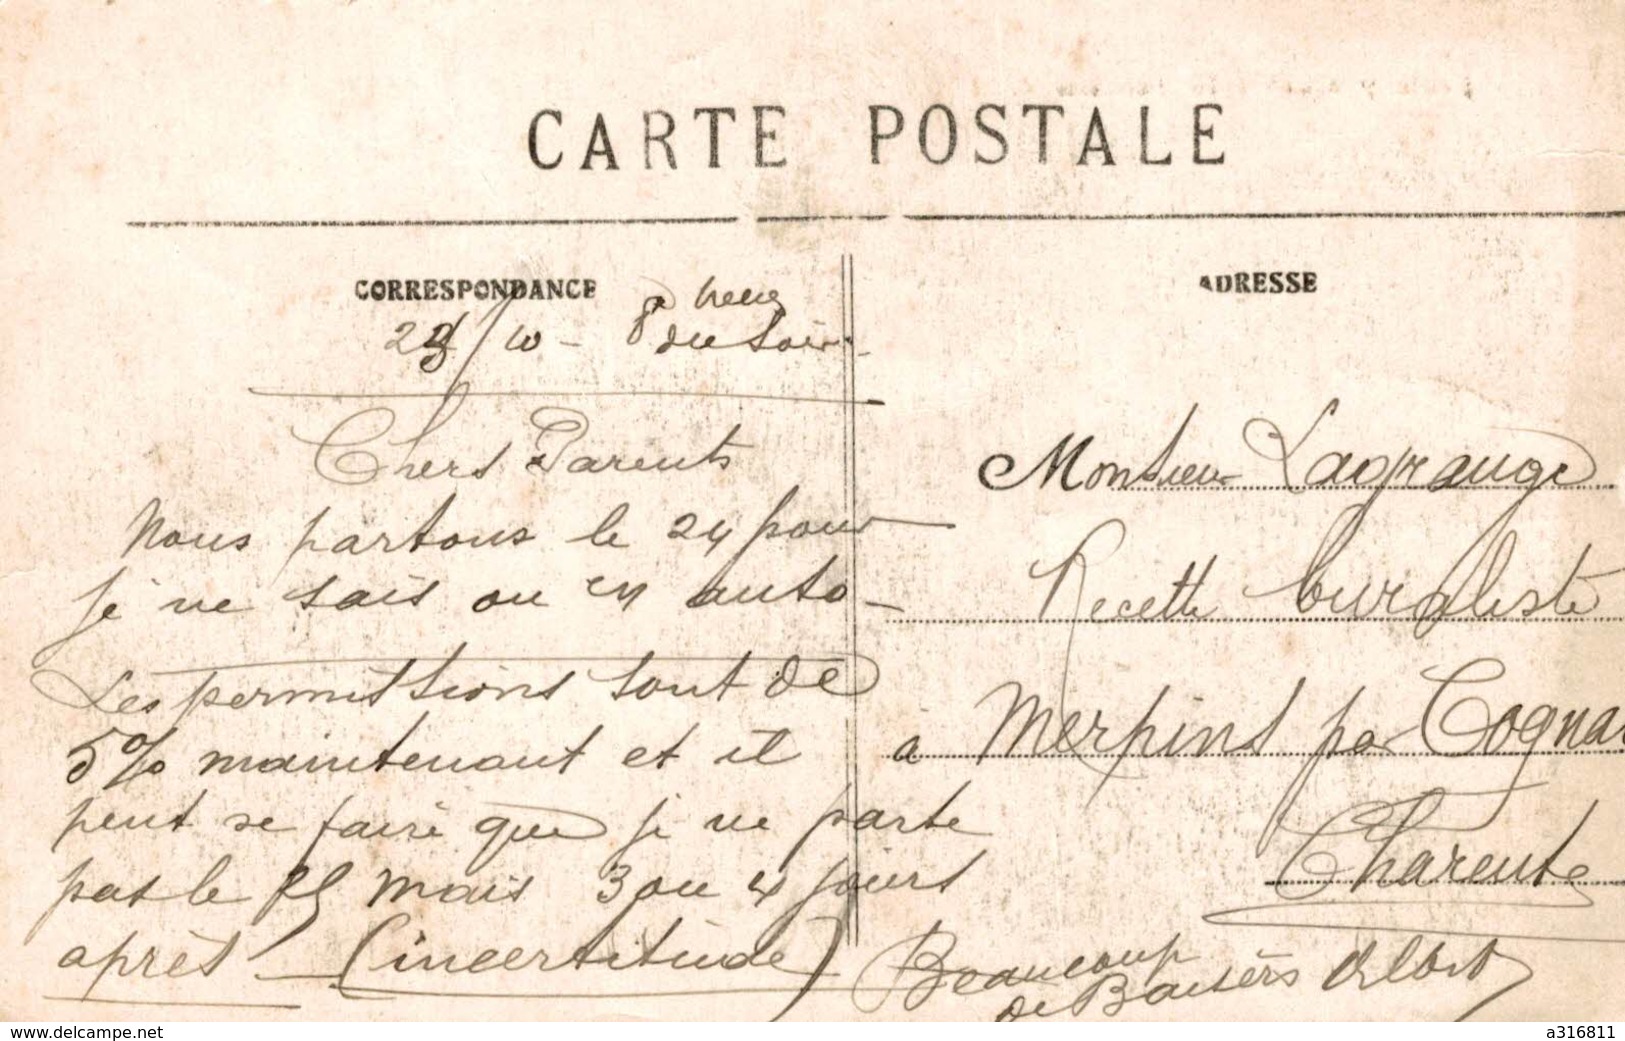 CARTE POSTALE
CORRESPONDANCE
ADRESSE
23/10 - 8 heures du soir -
Chers Parents
Nous partons le 24 pour
je ne sais ou en auto -
Les permissions sont de
5% maintenant et il
peut se faire que je ne parte
pas le 25 mais 3 ou 4 jours
après - (incertitude)
Beaucoup
de Baisers Albert
Monsieur Lagrange
Recette buraliste
à Merpins par Cognac
Charente
www.delcampe.net
a316811